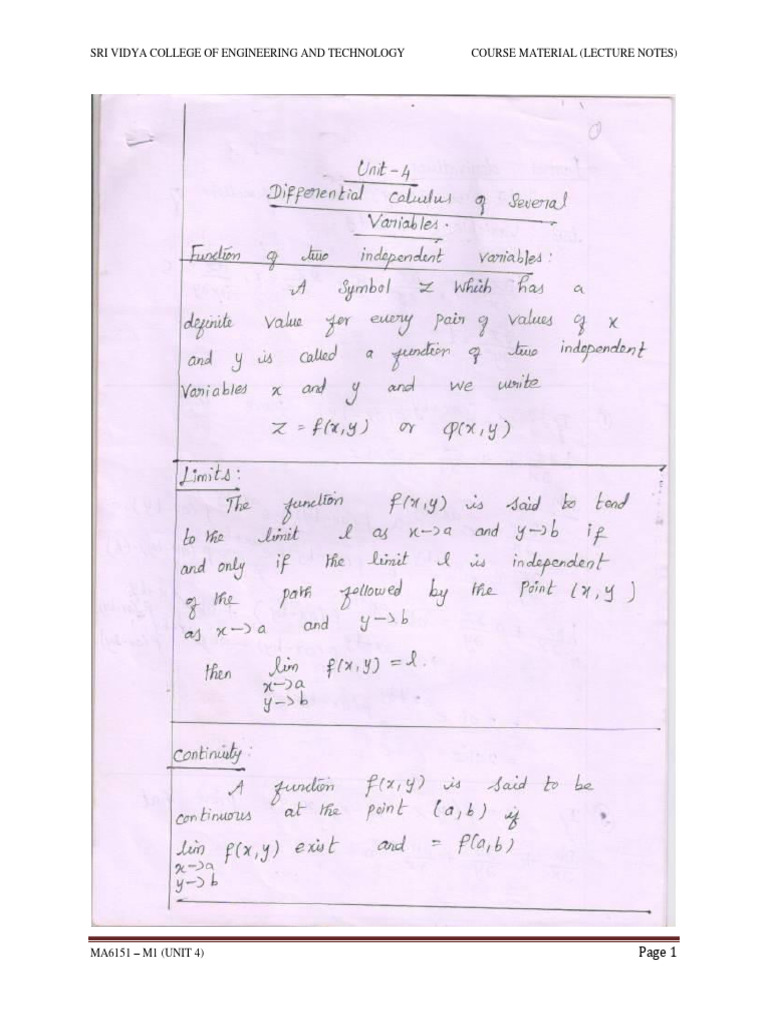 SRI VIDYA COLLEGE OF ENGINEERING AND TECHNOLOGY COURSE MATERIAL (LECTURE NOTES)
Unit-4
Differential Calculus of Several
Variables.
Function of two independent variables:
A Symbol Z which has a
definite value for every pair of values of x
and y is called a function of two independent
Variables x and y and we write
Z = f(x,y) or φ(x,y)
Limits:
The function f(x,y) is said to tend
to the limit l as x→a and y→b if
and only if the limit l is independent
of the path followed by the point (x,y)
as x→a and y→b
then lim f(x,y) = l.
x→a
y→b
Continuity:
A function f(x,y) is said to be
continuous at the point (a,b) if
lim f(x,y) exist and = f(a,b)
x→a
y→b
MA6151 – M1 (UNIT 4) Page 1